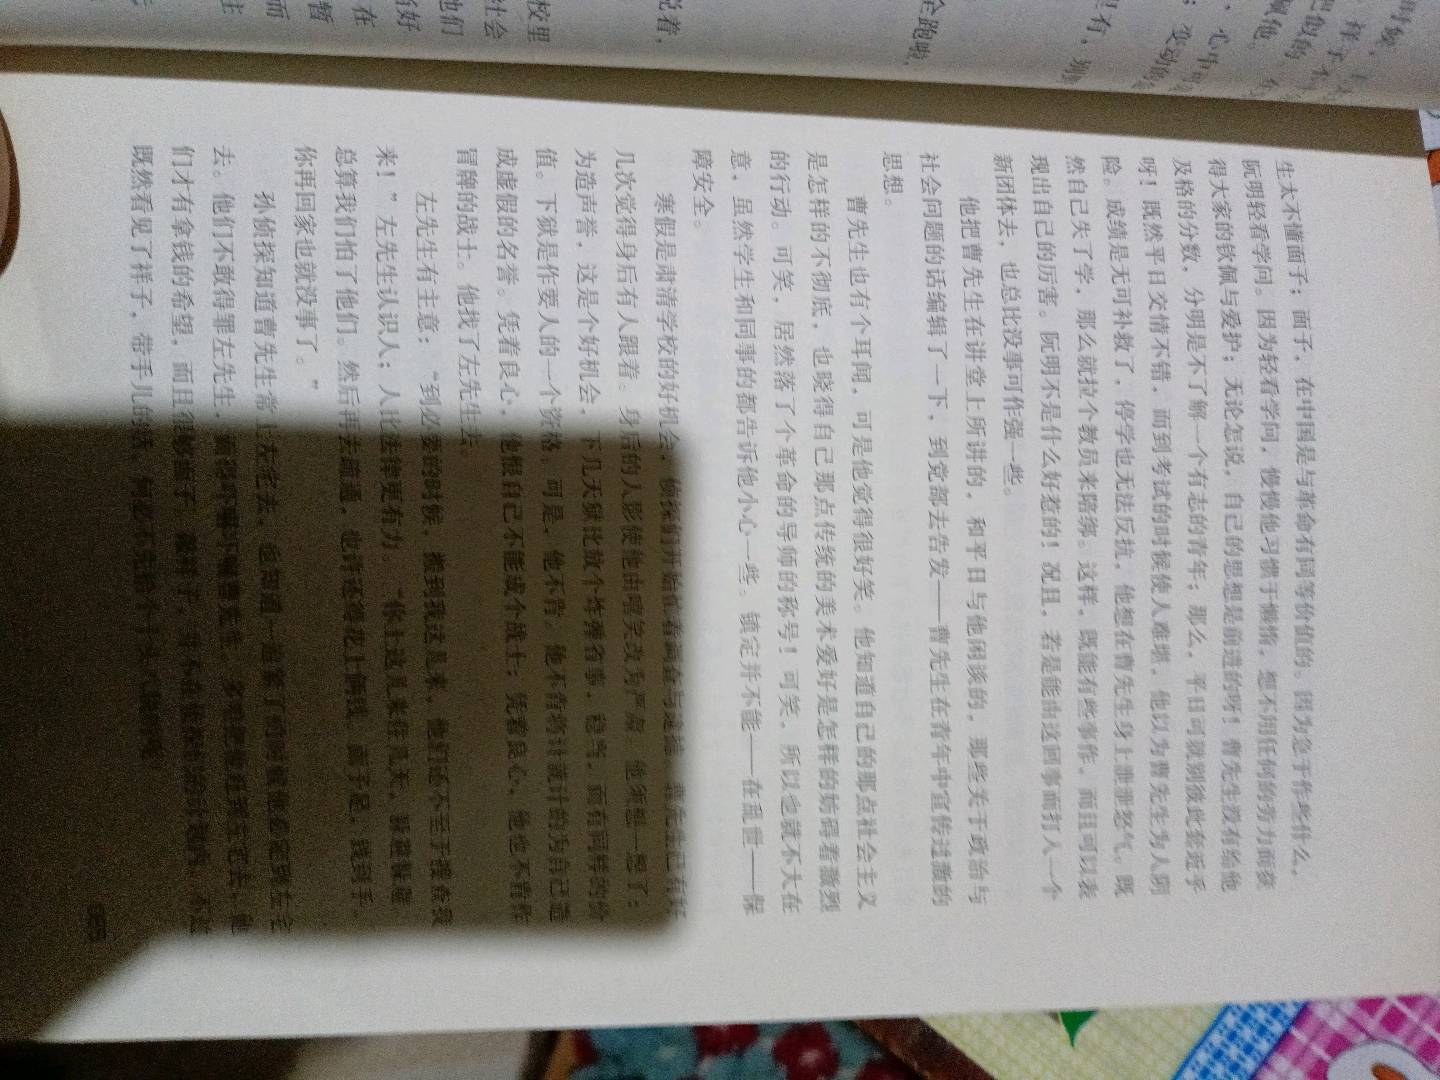 全跑啦，
说着，
校里
社会
他们
在
暂
而
主
生太不懂面子；面子，在中国是与革命有同等价值的。因为急于作些什么，
阮明轻看学问。因为轻看学问，慢慢他习惯于懒惰，想不用任何的劳力而获
得大家的钦佩与爱护；无论怎说，自己的思想是前进的呀！曹先生没有给他
及格的分数，分明是不了解一个有志的青年；那么，平日可就别彼此套近乎
呀！既然平日交情不错，而到考试的时候使人难堪，他以为曹先生为人阴
险。成绩是无可补救了，停学也无法反抗，他想在曹先生身上泄泄怒气。既
然自己失了学，那么就拉个教员来陪绑。这样，既能有些事作，而且可以表
现出自己的厉害。阮明不是什么好惹的！况且，若是能由这回事而打入一个
新团体去，也总比没事可作强一些。
他把曹先生在讲堂上所讲的，和平日与他闲谈的，那些关于政治与
社会问题的话编辑了一下，到党部去告发——曹先生在青年中宣传过激的
思想。
曹先生也有个耳闻，可是他觉得很好笑。他知道自己的那点社会主义
是怎样的不彻底，也晓得自己那点传统的美术爱好是怎样的妨碍着激烈
的行动。可笑，居然落了个革命的导师的称号！可笑，所以也就不大在
意，虽然学生和同事的都告诉他小心一些。镇定并不能——在乱世——保
障安全。
寒假是肃清学校的好机会，侦探们开始忙着调查与逮捕。曹先生已有好
几次觉得身后有人跟着。身后的人影使他由嬉笑改为严肃。他须想一想了：
为造声誉，这是个好机会，下几天狱比放个炸弹省事，稳当，而有同样的价
值。下狱是作要人的一个资格。可是，他不肯。他不肯将计就计的为自己造
成虚假的名誉。凭着良心，他恨自己不能成个战士；凭着良心，他也不肯作
冒牌的战士。他找了左先生去。
左先生有主意：“到必要的时候，搬到我这儿来，他们还不至于搜查我
来！”左先生认识人；人比法律更有力。“你上这儿来住几天，躲避躲避。
总算我们怕了他们。然后再去疏通，也许还得花上俩钱。面子足，钱到手，
你再回家也就没事了。”
孙侦探知道曹先生常上左宅去，也知道一追紧了的时候他必定到左宅
去。他们不敢得罪左先生，而得吓唬就吓唬曹先生。多咱把他赶到左宅去，他
们才有拿钱的希望，而且很够面子。敲祥子，并不在侦探们的计划内，不过
既然看见了祥子，带手儿的活，何必不先拾个十头八块的呢？